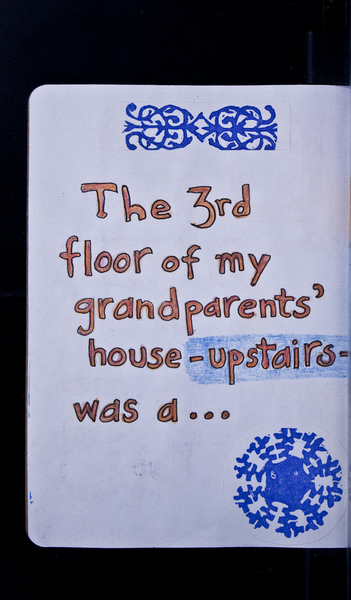 The 3rd
floor of my
grandparents'
house -upstairs-
was a...